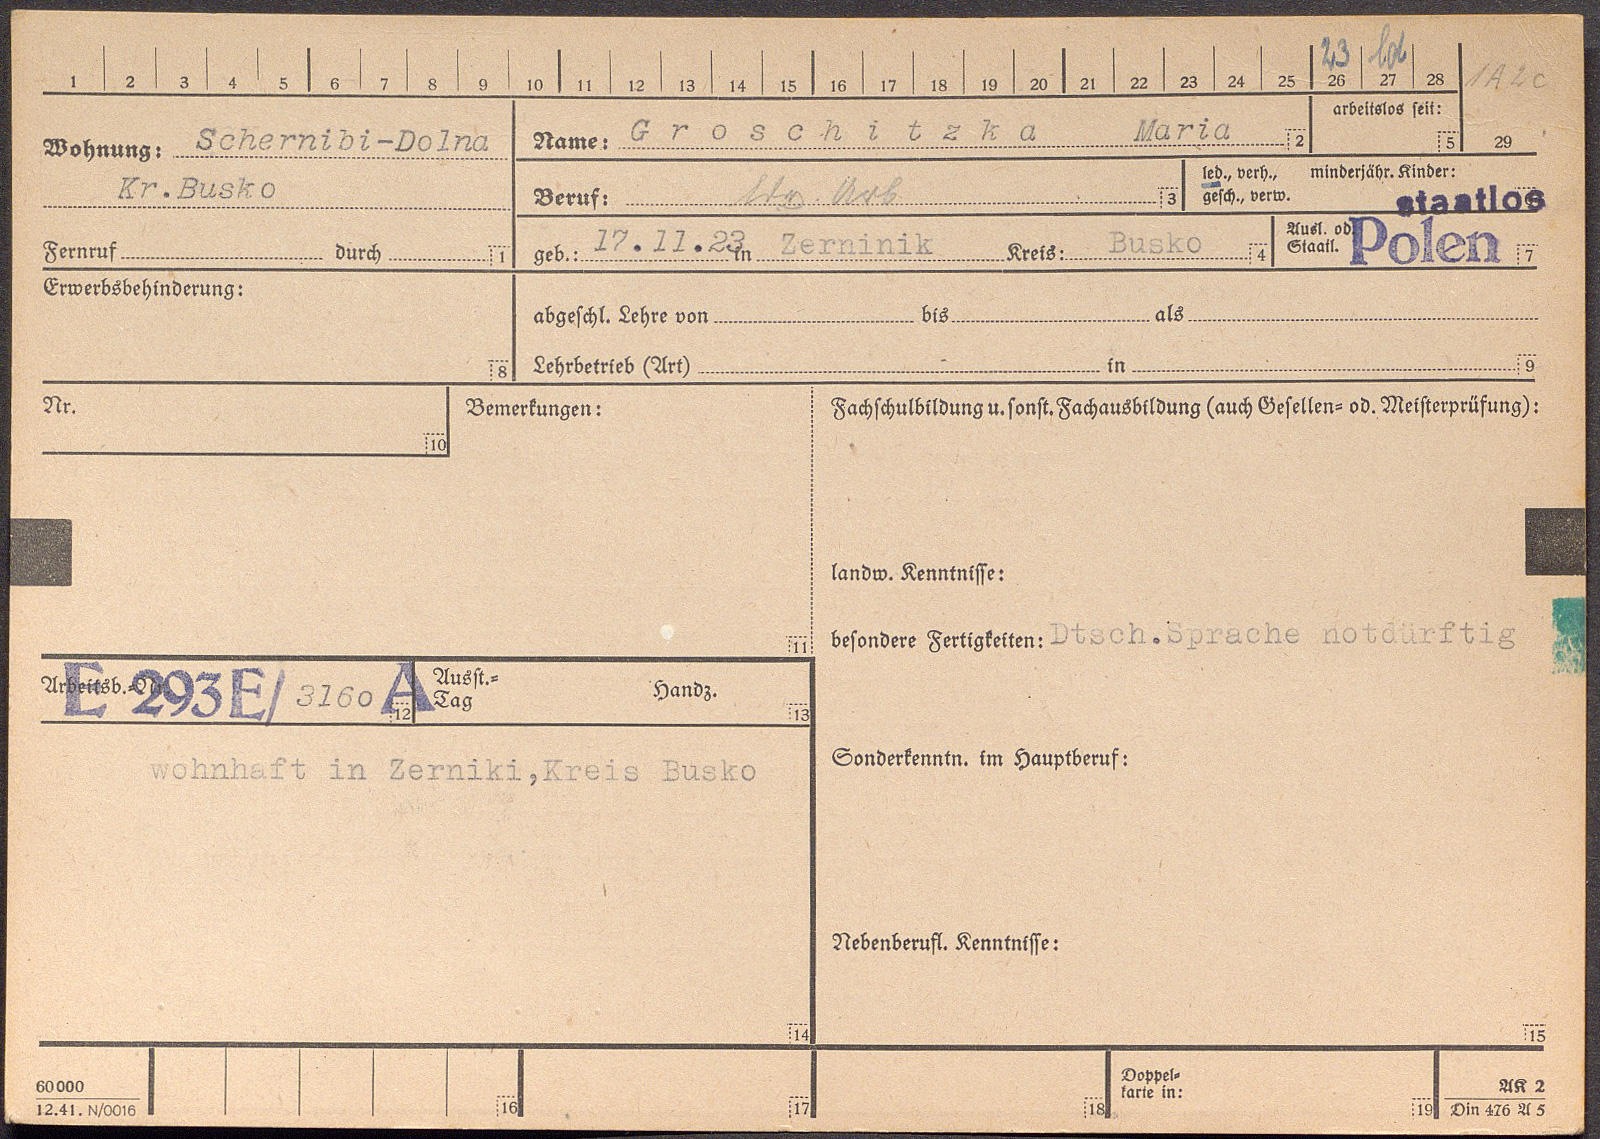 23 ld
1 2 3 4 5 6 7 8 9 10 11 12 13 14 15 16 17 18 19 20 21 22 23 24 25 26 27 28 1A2c
arbeitslos seit:
Wohnung: Schernibi-Dolna
Name: Groschitzka Maria 2
5 29
Kr.Busko
Beruf: 3
led., verh., minderjähr. Kinder:
gesch., verw.
staatlos
Fernruf durch 1
geb.: 17.11.23 in Zerninik Kreis: Busko 4
Ausl. od.
Staatl. Polen 7
Erwerbsbehinderung:
8
abgeschl. Lehre von bis als
Lehrbetrieb (Art) in 9
Nr.
10
Bemerkungen:
11
Fachschulbildung u. sonst. Fachausbildung (auch Gesellen- od. Meisterprüfung):
landw. Kenntnisse:
besondere Fertigkeiten: Dtsch.Sprache notdürftig
Arbeitsb.-Nr. E 293E/ 3160 A 12
Ausst.-
Tag Handz. 13
wohnhaft in Zerniki,Kreis Busko
14
Sonderkenntn. im Hauptberuf:
Nebenberufl. Kenntnisse:
15
60000
12.41. N/0016
16 17 18
Doppel-
karte in: 19
AK 2
Din 476 A 5